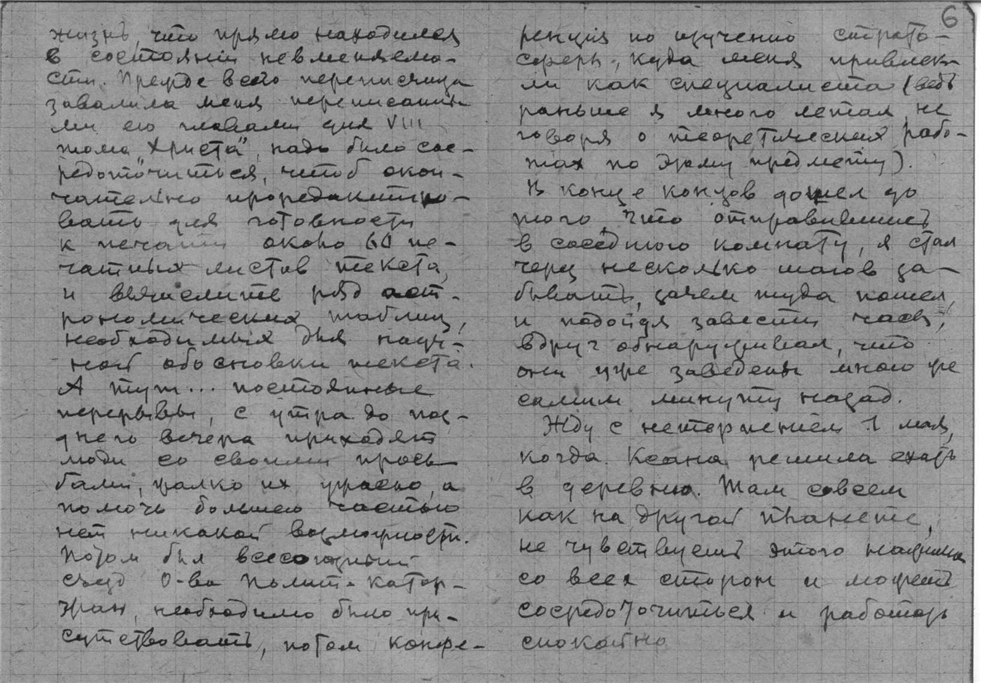 6
жизнь, что прямо находился
в состоянии невменяемо-
сти. Прежде всего переписчица
завалила меня переписанны-
ми ею главами для VIII
тома "Христа", надо было сос-
редоточиться, чтоб окон-
чательно проредактиро-
вать для готовности
к печати около 60 пе-
чатных листов текста,
и вычислить ряд аст-
рономических таблиц,
необходимых для науч-
ной обосновки текста.
А тут... постоянные
перерывы, с утра до поз-
днего вечера приходят
люди со своими прось-
бами, жалко их ужасно, а
помочь большею частью
нет никакой возможности.
Потом был всесоюзный
съезд О-ва Полит-Катор-
жан, необходимо было при-
сутствовать, потом конфе-
ренция по изучению страто-
сферы, куда меня привлек-
ли как специалиста (ведь
раньше я много летал, не
говоря о теоретических рабо-
тах по этому предмету).
В конце концов дошел до
того что отправившись
в соседнюю комнату, я стал
через несколько шагов за-
бывать, зачем туда пошел,
и подойдя завести часы,
вдруг обнаруживал, что
они уже заведены мною же
самим минуту назад.
Жду с нетерпением 1 мая,
когда Ксана решила ехать
в деревню. Там совсем
как на другой планете,
не чувствуешь этого нажима
со всех сторон и можешь
сосредоточиться и работать
спокойно